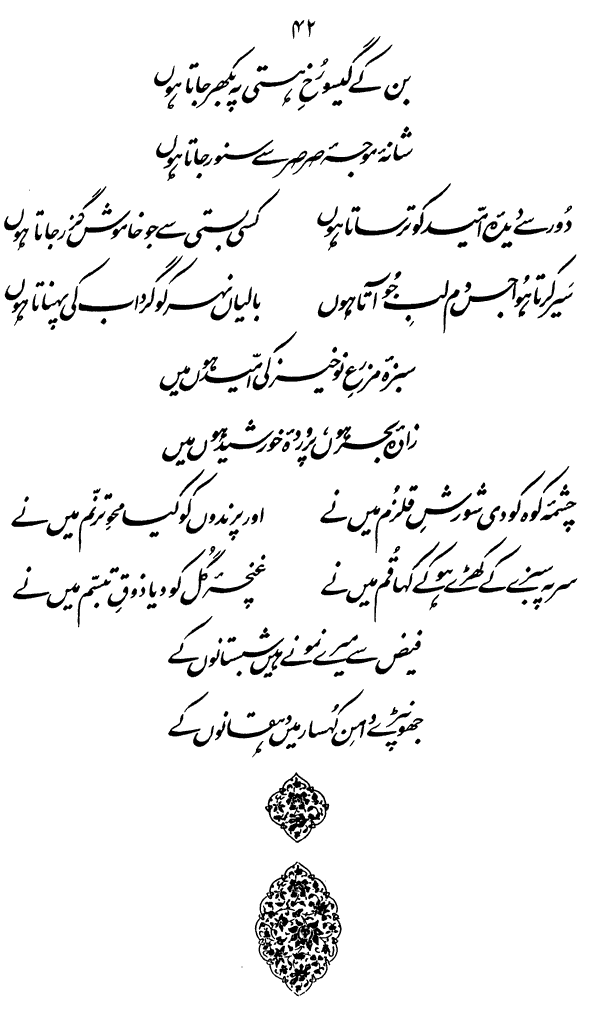 ۴۲
بن کے گیسو رُخِ ہستی پہ بکھر جاتا ہوں
شانۂ موجۂ صرصر سے سنور جاتا ہوں
دُور سے دیدۂ امّید کو ترساتا ہوں کسی بستی سے جو خاموش گزر جاتا ہوں
سَیر کرتا ہُوا جس دم لبِ جُو آتا ہوں بالیاں نہر کو گرداب کی پہناتا ہوں
سبزۂ مزرعِ نوخیز کی امّید ہوں میں
زادۂ بحر ہوں، پروردۂ خورشید ہوں میں
چشمۂ کوہ کو دی شورشِ قلزُم میں نے اور پرندوں کو کیا محوِ ترنّم میں نے
سر پہ سبزے کے کھڑے ہو کے کہا قُم میں نے غنچۂ گُل کو دیا ذوقِ تبسّم میں نے
فیض سے میرے نمونے ہیں شبستانوں کے
جھونپڑے دامنِ کُہسار میں دہقانوں کے